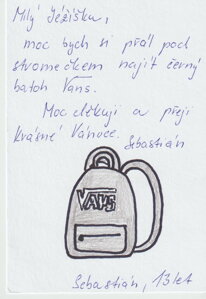 Milý Ježíšku,
moc bych si přál pod
stromečkem najít černý
batoh Vans.
Moc děkuji a přeji
krásné Vánoce.
Sebastián
VANS
Sebastián, 13 let